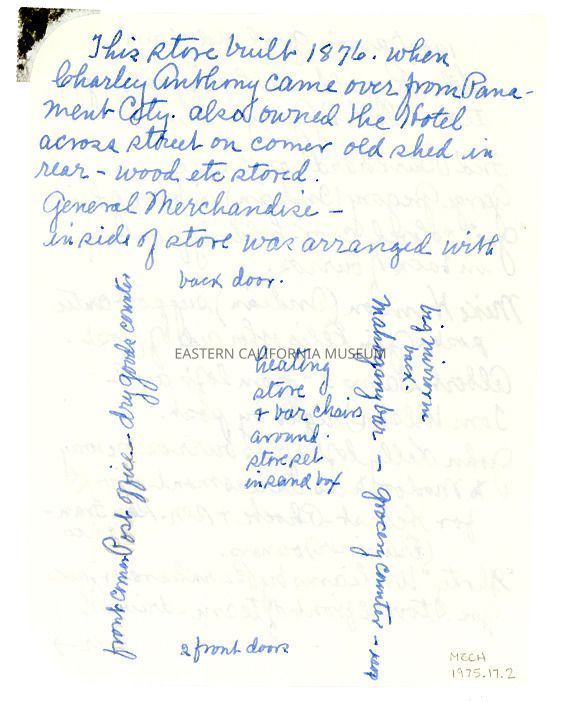 This store built 1876. when
Charley Anthony came over from Pana-
ment City. also owned the Hotel
across street on corner old shed in
rear - wood etc stored.
General Merchandise -
inside of store was arranged with
back door.
front corner Post office - dry goods counter
EASTERN CALIFORNIA MUSEUM
heating
store
& bar chairs
around.
store set
in sand box
Mahogany bar - grocery counter -
big mirror in
back.
2 front doors
MECH
1975.17.2